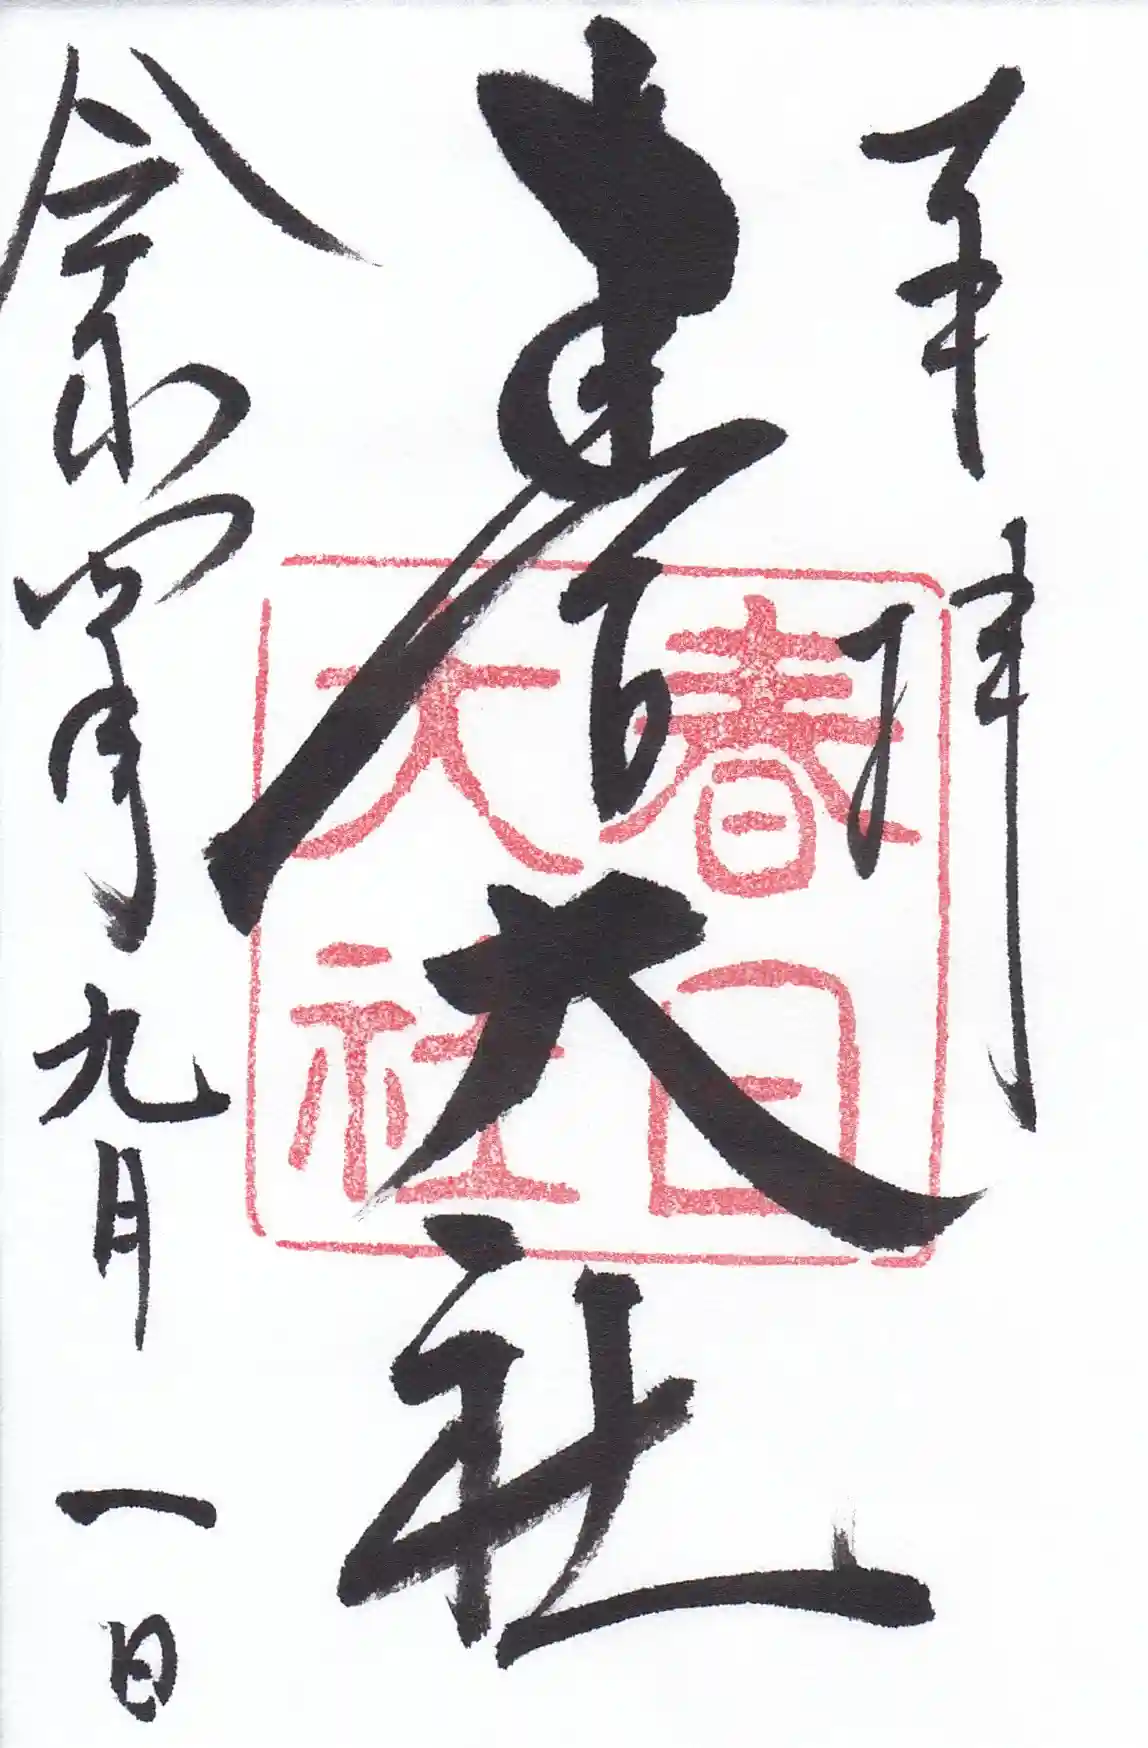 奉拝
春日大社
春日
大社
令和四年九月一日